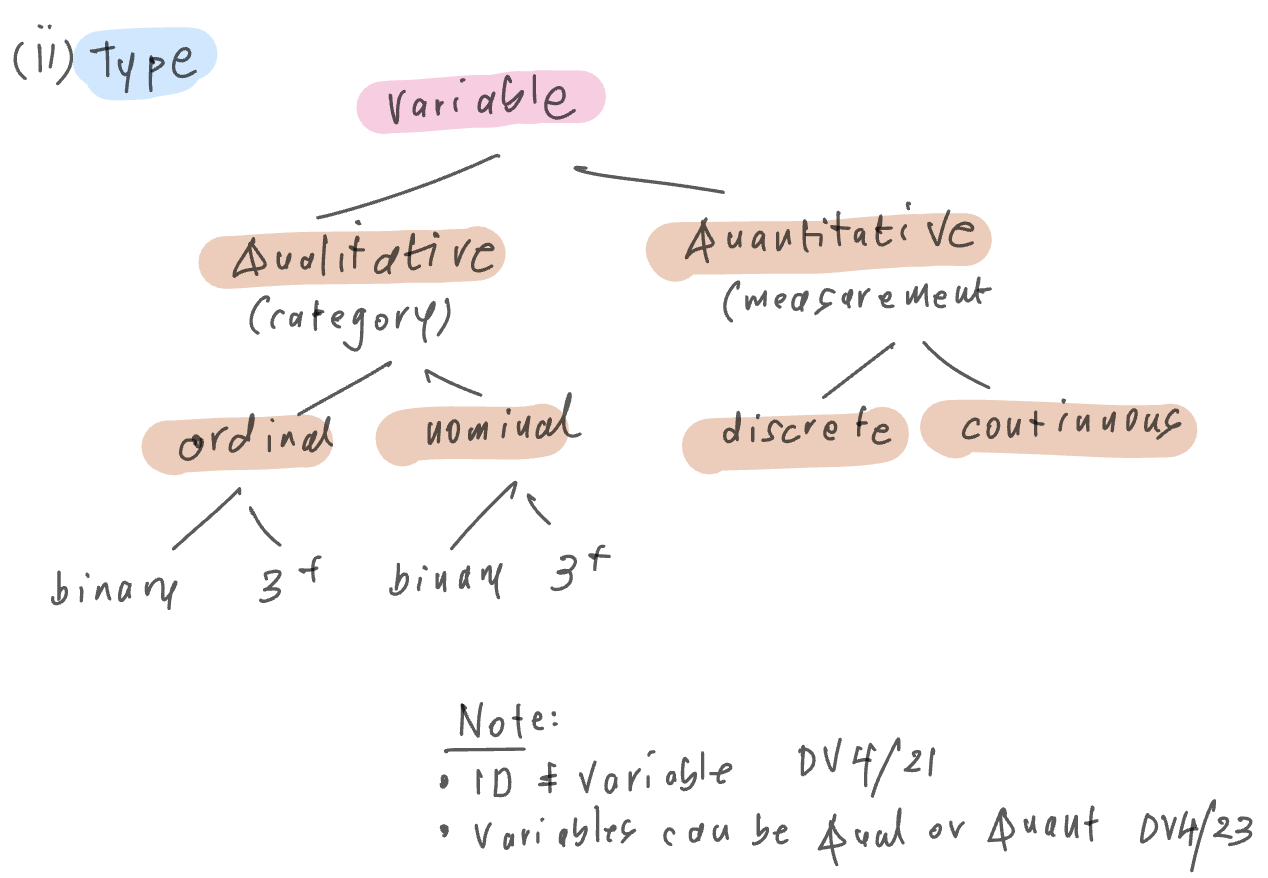 (ii) Type
Variable
Qualitative Quantitative
(category) (measurement
ordinal nominal discrete continuous
binary 3+ binary 3+
Note:
• ID ≠ Variable DV4/21
• Variables can be Qual or Quant DV4/23